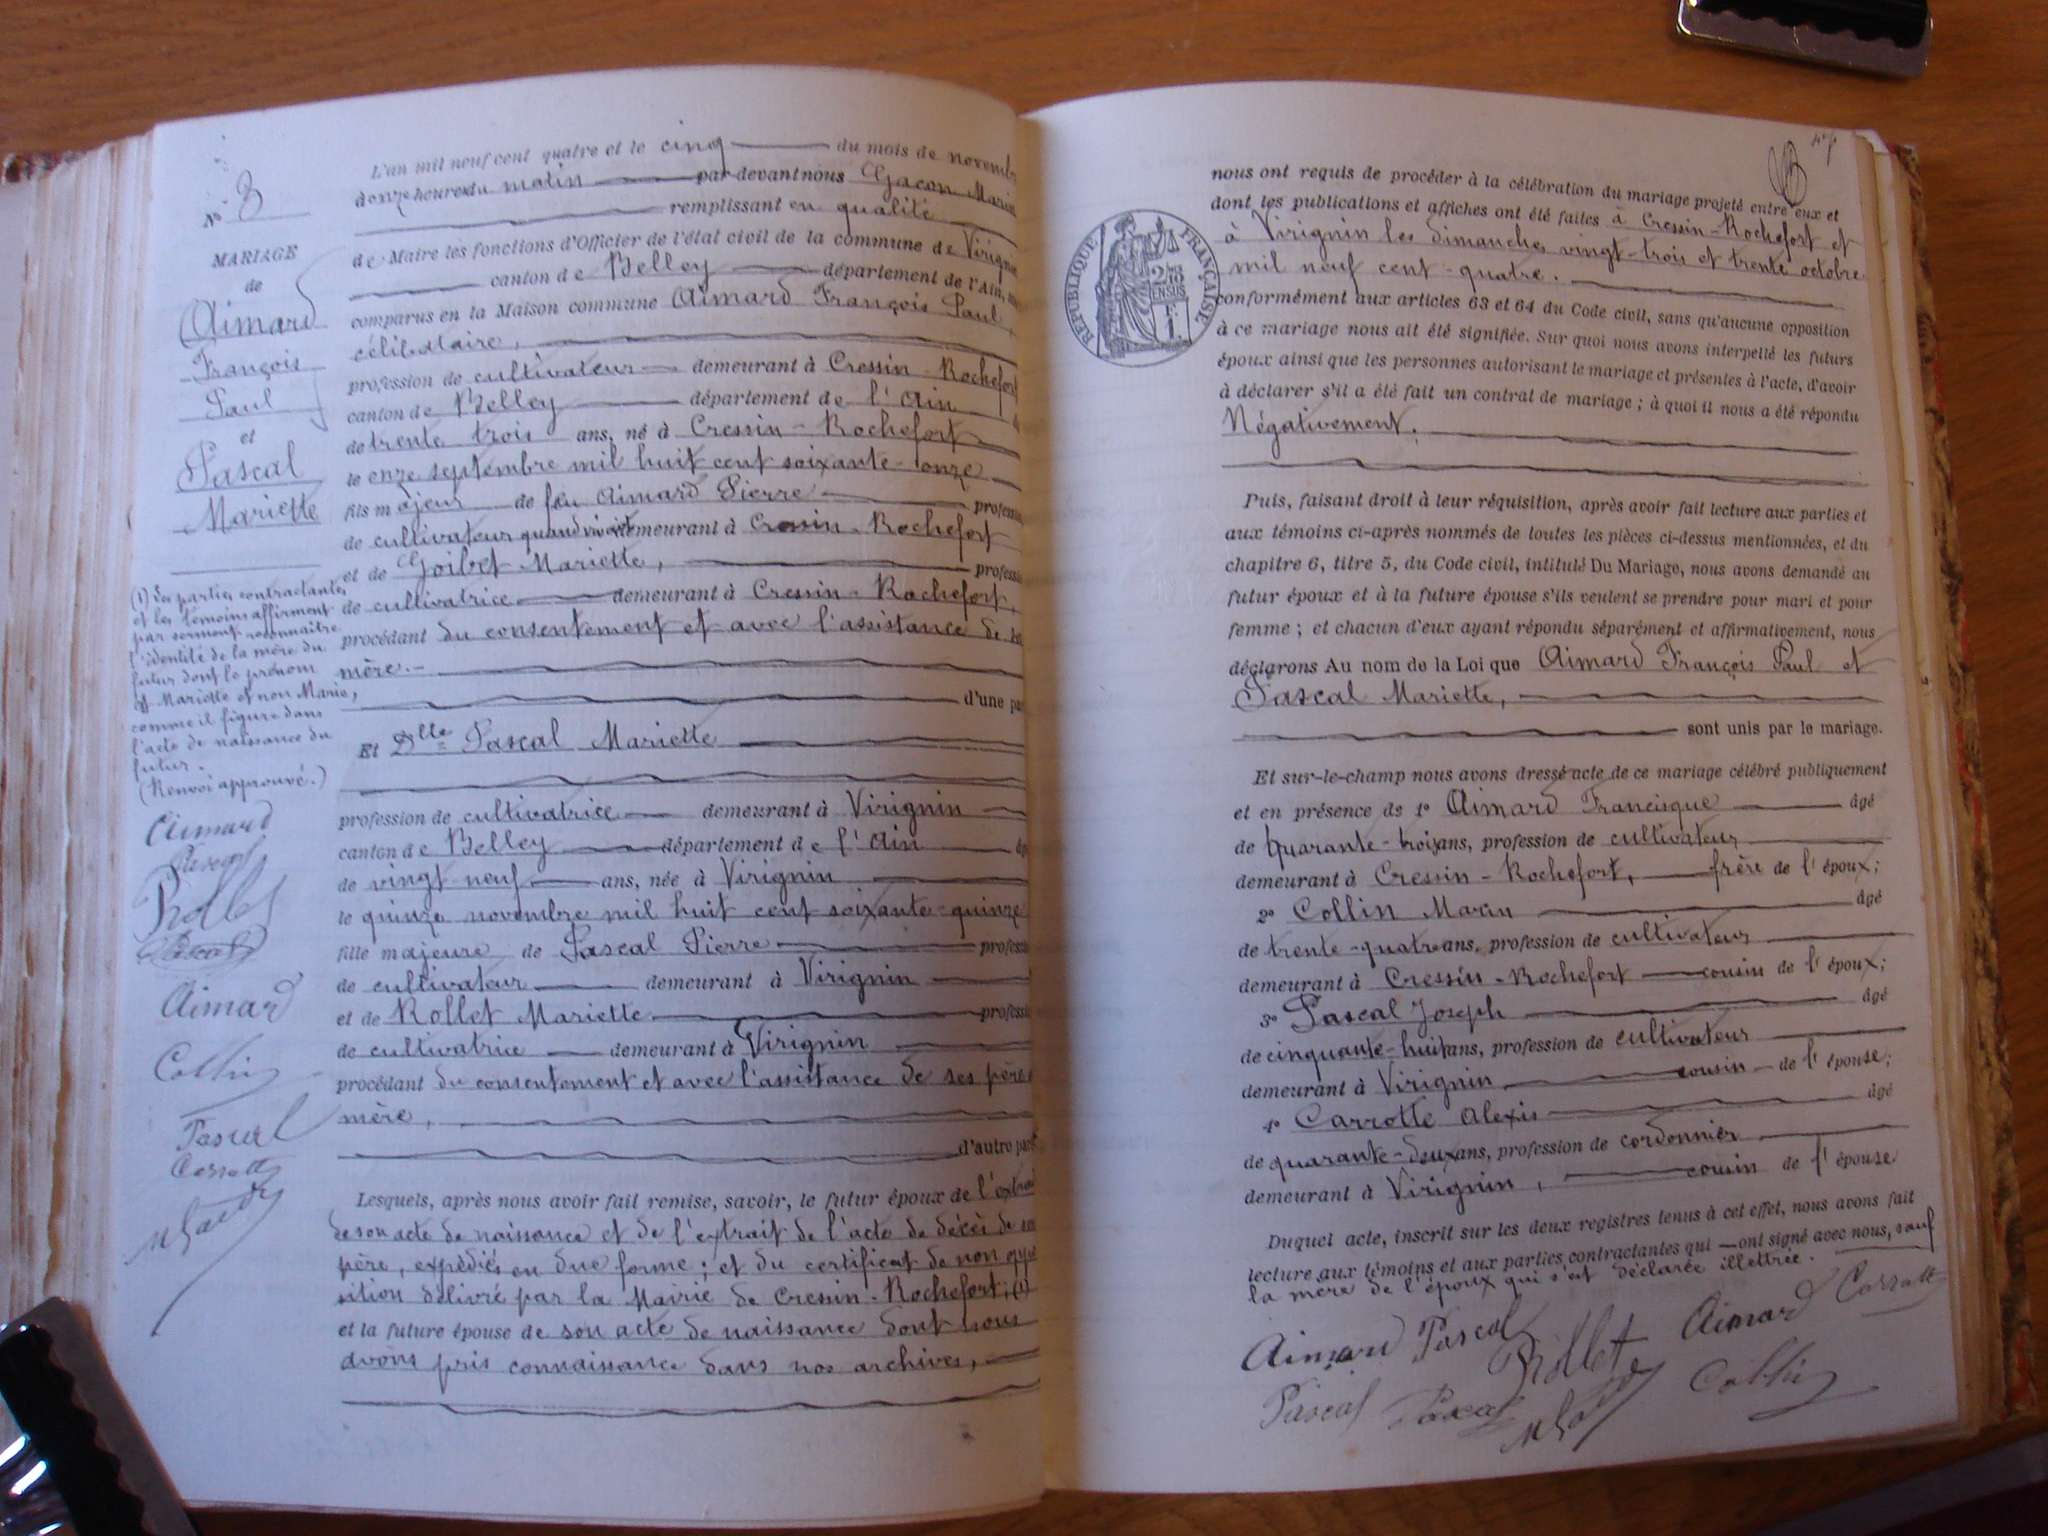 N° 3
MARIAGE
de
Aimard
François
Paul
et
Pascal
Mariette
(1) Les parties contractantes
et les témoins affirment
par serment reconnaître
l'identité de la mère du
futur dont le prénom
est Mariette et non Marie,
comme il figure dans
l'acte de naissance du
futur.
(Renvoi approuvé.)
Aimard
Pascal
Rollet
Pascal
Aimard
Collin
Pascal
Carrotte
L'an mil neuf cent quatre et le cinq du mois de novembre
à onze heures du matin par-devant nous Gacon Marin
remplissant en qualité
de Maire les fonctions d'Officier de l'état civil de la commune de Virignin
canton de Belley département de l'Ain,
comparus en la Maison commune Aimard François Paul,
célibataire,
profession de cultivateur demeurant à Cressin-Rochefort
canton de Belley département de l'Ain
de trente trois ans, né à Cressin-Rochefort
le onze septembre mil huit cent soixante-onze
fils majeur de feu Aimard Pierre profession
de cultivateur quand vivait demeurant à Cressin-Rochefort
et de Goibet Mariette, profession
de cultivatrice demeurant à Cressin-Rochefort,
procédant du consentement et avec l'assistance de sa
mère.-
d'une part
Et Dlle Pascal Mariette
profession de cultivatrice demeurant à Virignin
canton de Belley département de l'Ain
de vingt neuf ans, née à Virignin
le quinze novembre mil huit cent soixante-quinze
fille majeure de Pascal Pierre profession
de cultivateur demeurant à Virignin
et de Rollet Mariette profession
de cultivatrice demeurant à Virignin
procédant du consentement et avec l'assistance de ses père
mère,
d'autre part
Lesquels, après nous avoir fait remise, savoir, le futur époux de l'extrait
de son acte de naissance et de l'extrait de l'acte de décès de son
père, expédiés en due forme; et du certificat de non oppo
sition délivré par la Mairie de Cressin-Rochefort; (1)
et la future épouse de son acte de naissance dont nous
avons pris connaissance dans nos archives,
nous ont requis de procéder à la célébration du mariage projeté entre eux et
dont les publications et affiches ont été faites à Cressin-Rochefort et
à Virignin les dimanches vingt-trois et trente octobre
mil neuf cent-quatre.
RÉPUBLIQUE FRANÇAISE
conformément aux articles 63 et 64 du Code civil, sans qu'aucune opposition
à ce mariage nous ait été signifiée. Sur quoi nous avons interpellé les futurs
époux ainsi que les personnes autorisant le mariage et présentes à l'acte, d'avoir
à déclarer s'il a été fait un contrat de mariage; à quoi il nous a été répondu
Négativement.
Puis, faisant droit à leur réquisition, après avoir fait lecture aux parties et
aux témoins ci-après nommés de toutes les pièces ci-dessus mentionnées, et du
chapitre 6, titre 5, du Code civil, intitulé Du Mariage, nous avons demandé au
futur époux et à la future épouse s'ils veulent se prendre pour mari et pour
femme; et chacun d'eux ayant répondu séparément et affirmativement, nous
déclarons Au nom de la Loi que Aimard François Paul et
Pascal Mariette,
sont unis par le mariage.
Et sur-le-champ nous avons dressé acte de ce mariage célébré publiquement
et en présence de 1° Aimard Francisque âgé
de quarante-trois ans, profession de cultivateur
demeurant à Cressin-Rochefort, frère de l'époux;
2° Collin Marin âgé
de trente-quatre ans, profession de cultivateur
demeurant à Cressin-Rochefort cousin de l'époux;
3° Pascal Joseph âgé
de cinquante-huit ans, profession de cultivateur
demeurant à Virignin cousin de l'épouse;
4° Carrotte Alexis âgé
de quarante-deux ans, profession de cordonnier
demeurant à Virignin, cousin de l'épouse
Duquel acte, inscrit sur les deux registres tenus à cet effet, nous avons fait
lecture aux témoins et aux parties contractantes qui ont signé avec nous, sauf
la mère de l'époux qui s'est déclarée illettrée.
Aimard Pascal Rollet Aimard Carrotte
Pascal Pascal Collin